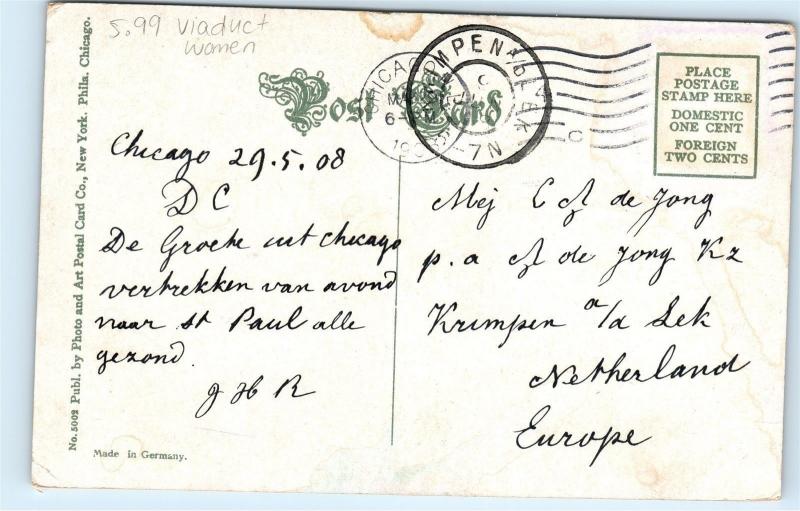 5.99 Viaduct
women
No. 5002 Publ. by Photo and Art Postal Card Co., New York. Phila. Chicago.
Post Card
CHICAGO
6-
190
MPEN A/D LEK
-7N
PLACE
POSTAGE
STAMP HERE
DOMESTIC
ONE CENT
FOREIGN
TWO CENTS
Chicago 29.5.08
D C
De Groete uit Chicago
vertrekken van avond
naar St Paul alle
gezond.
J H R
Mej C A de Jong
p.a A de Jong Kz
Krimpen a/d Lek
Netherland
Europe
Made in Germany.